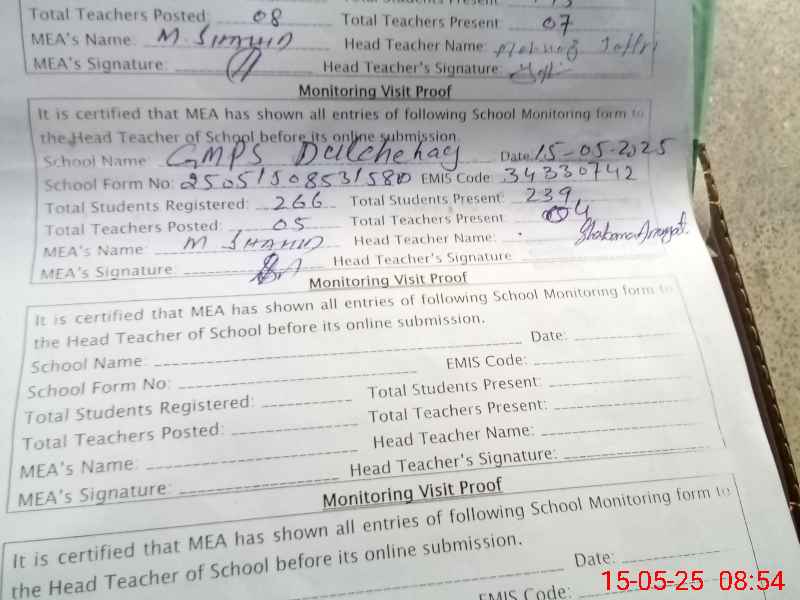 Total Teachers Posted: 08 Total Teachers Present: 07
MEA's Name: M. SHAHID Head Teacher Name:
MEA's Signature: Head Teacher's Signature:
Monitoring Visit Proof
It is certified that MEA has shown all entries of following School Monitoring form to
the Head Teacher of School before its online submission.
School Name: GMPS Date: 15-05-2025
School Form No: EMIS Code: 34330742
Total Students Registered: 266 Total Students Present: 239
Total Teachers Posted: 05 Total Teachers Present: 04
MEA's Name: M SHAHID Head Teacher Name:
MEA's Signature: Head Teacher's Signature
Monitoring Visit Proof
It is certified that MEA has shown all entries of following School Monitoring form to
the Head Teacher of School before its online submission.
School Name: Date:
School Form No: EMIS Code:
Total Students Registered: Total Students Present:
Total Teachers Posted: Total Teachers Present:
MEA's Name: Head Teacher Name:
MEA's Signature: Head Teacher's Signature:
Monitoring Visit Proof
It is certified that MEA has shown all entries of following School Monitoring form to
the Head Teacher of School before its online submission.
Date:
EMIS Code:
15-05-25 08:54